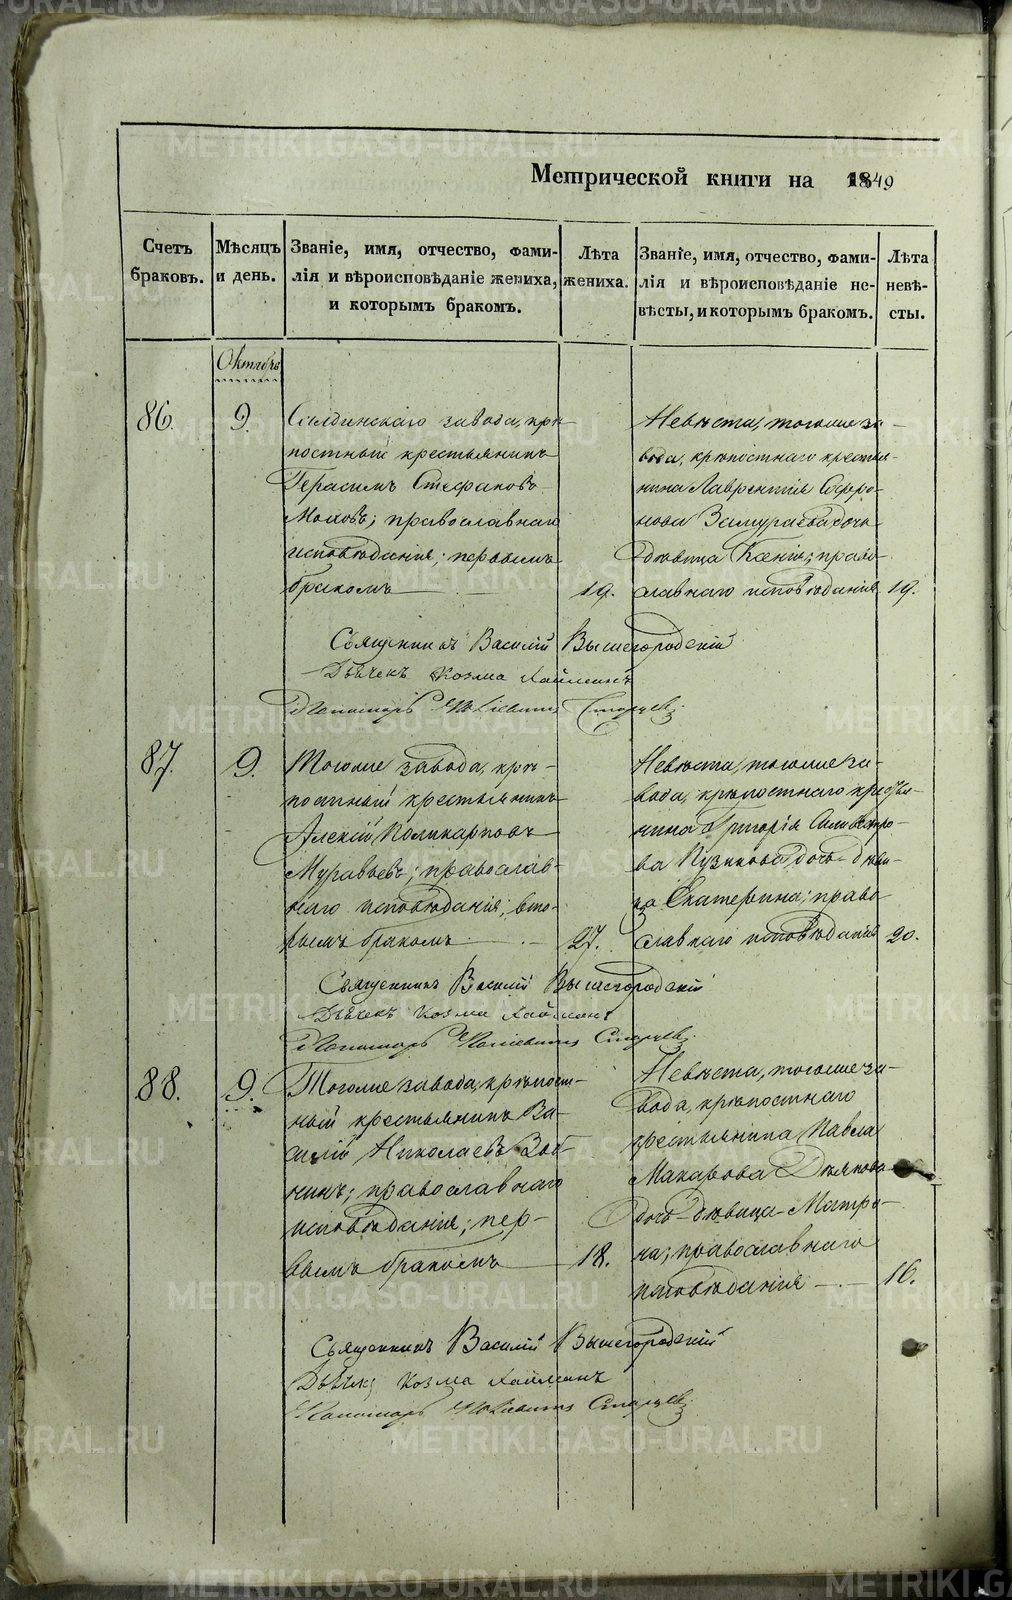 Метрической книги на 1849
Счетъ браковъ.
Мѣсяцъ и день.
Званіе, имя, отчество, фами-
лія и вѣроисповѣданіе жениха,
и которымъ бракомъ.
Лѣта жениха.
Званіе, имя, отчество, фами-
лія и вѣроисповѣданіе не-
вѣсты, и которымъ бракомъ.
Лѣта невѣ-
сты.
Октябрь
86. 9.
Салдинскаго завода, крѣ-
постный крестьянинъ
Герасимъ Стефановъ
православнаго
исповѣданія; первымъ
бракомъ 19.
Невѣста, тогоже за-
вода, крѣпостнаго крестья-
нина Лаврентія Софро-
нова Замураева дочь
дѣвица Ксенія; право-
славнаго исповѣданія 19.
Священникъ Василій Вышегородскій
Дьячекъ Козма
Пономарь Старцев
87. 9.
Тогоже завода, крѣ-
постный крестьянинъ
Алексій Поликарповъ
Муравьевъ; православ-
наго исповѣданія; вто-
рымъ бракомъ 27.
Невѣста, тогоже за-
вода, крѣпостнаго крестья-
нина Григорія Силивестро-
ва дочь дѣви-
ца Екатерина; право-
славнаго исповѣданія 20.
Священникъ Василій Вышегородскій
Дьячекъ Козма
Пономарь Старцев
88. 9.
Тогоже завода, крѣпост-
ный крестьянинъ Ва-
силій Николаевъ Зоб-
нинъ; православнаго
исповѣданія; пер-
вымъ бракомъ 18.
Невѣста, тогоже за-
вода, крѣпостнаго
крестьянина Павла
Макарова
дочь дѣвица Матро-
на; православнаго
исповѣданія 16.
Священникъ Василій Вышегородскій
Дьячекъ Козма
Пономарь Старцев
METRIKI.GASO-URAL.RU